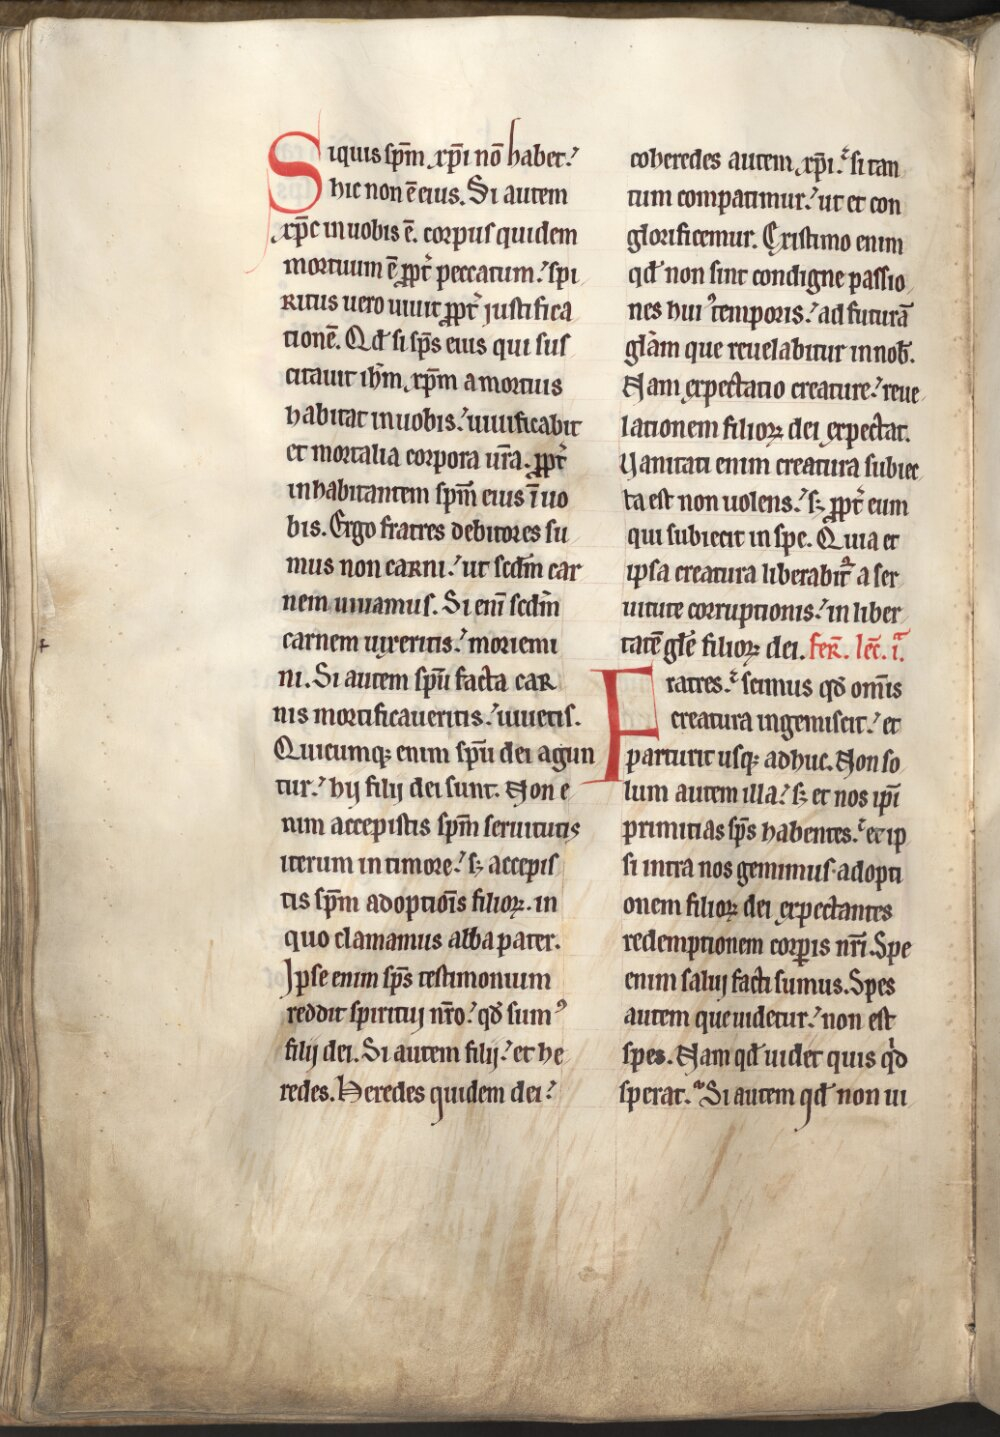 Siquis sp̄m xp̄i nō habet.
hic non ē eius. Si autem
xp̄c in uobis ē. corpus quidem
mortuum ē ꝓpt̄ peccatum. spi
ritus uero uiuit ꝓpt̄ justifica
tionē. Qđ si sp̄s eius qui sus
citauit ih̄m xp̄m a mortuis
habitat in uobis. uiuificabit
et mortalia corpora ur̄a. ꝓpt̄
inhabitantem sp̄m eius ī uo
bis. Ergo fratres debitores su
mus non carni. ut scd̄m car
nem uiuamus. Si enī scd̄m
carnem uixeritis. moriemi
ni. Si autem sp̄u facta car
nis mortificaueritis. uiuetis.
Quicumqꝫ enim sp̄u dei agun
tur. hij filij dei sunt. Non e
nim accepistis sp̄m seruitutis
iterum in timore. sꝫ accepis
tis sp̄m adoptiōis filioꝝ. in
quo clamamus abba pater.
Ipse enim sp̄s testimonium
reddit spiritui nr̄o. qđ sumꝰ
filij dei. Si autem filij. et he
redes. Heredes quidem dei.
coheredes autem xp̄i. si tan
tum compatimur. ut et con
glorificemur. Existimo enim
qđ non sint condigne passio
nes huiꝰ temporis. ad futurā
gl̄am que reuelabitur in nob̄.
Nam expectatio creature. reue
lationem filioꝝ dei expectat.
Vanitati enim creatura subiec
ta est non uolens. sꝫ ꝓpt̄ eum
qui subiecit in spe. Quia et
ipsa creatura liberabit̄ a ser
uitute corruptionis. in liber
tatē gl̄e filioꝝ dei. fer̄. lec̄. i.ª
Fratres. scimus qđ om̄is
creatura ingemiscit. et
parturit usqꝫ adhuc. Non so
lum autem illa. sꝫ et nos ip̄i
primitias sp̄s habentes. et ip
si intra nos gemimus adopti
onem filioꝝ dei expectantes
redemptionem corꝑis nr̄i. Spe
enim salui facti sumus. Spes
autem que uidetur. non est
spes. Nam qđ uidet quis qđ
sperat. Si autem qđ non ui